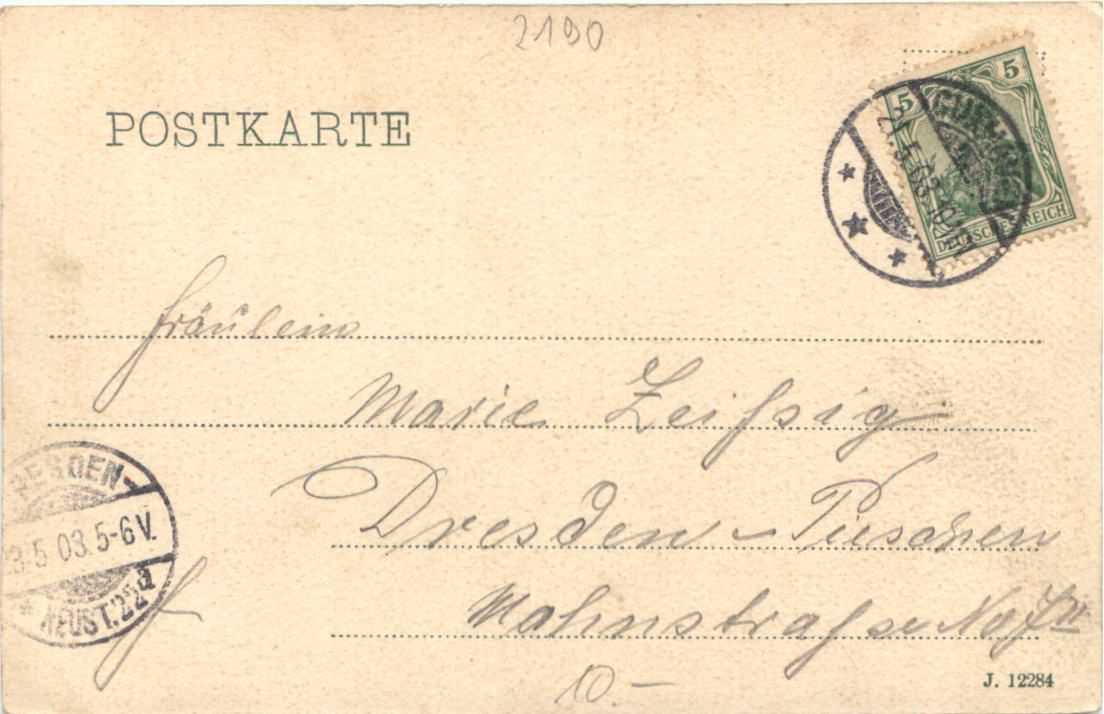 2190
POSTKARTE
5 5
DEUTSCHES REICH
5.03
Fräulein
Marie Zeißsig
Dresden - Pieschen
Mohnstraßse No
RESDEN-
3.5 03. 5-6 V.
* NEUST. 22 a
10 -
J. 12284